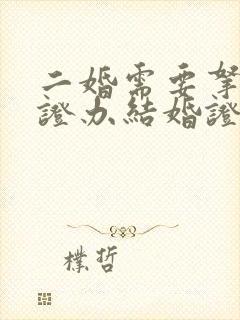 二婚需要拏
證办結婚證
樸哲